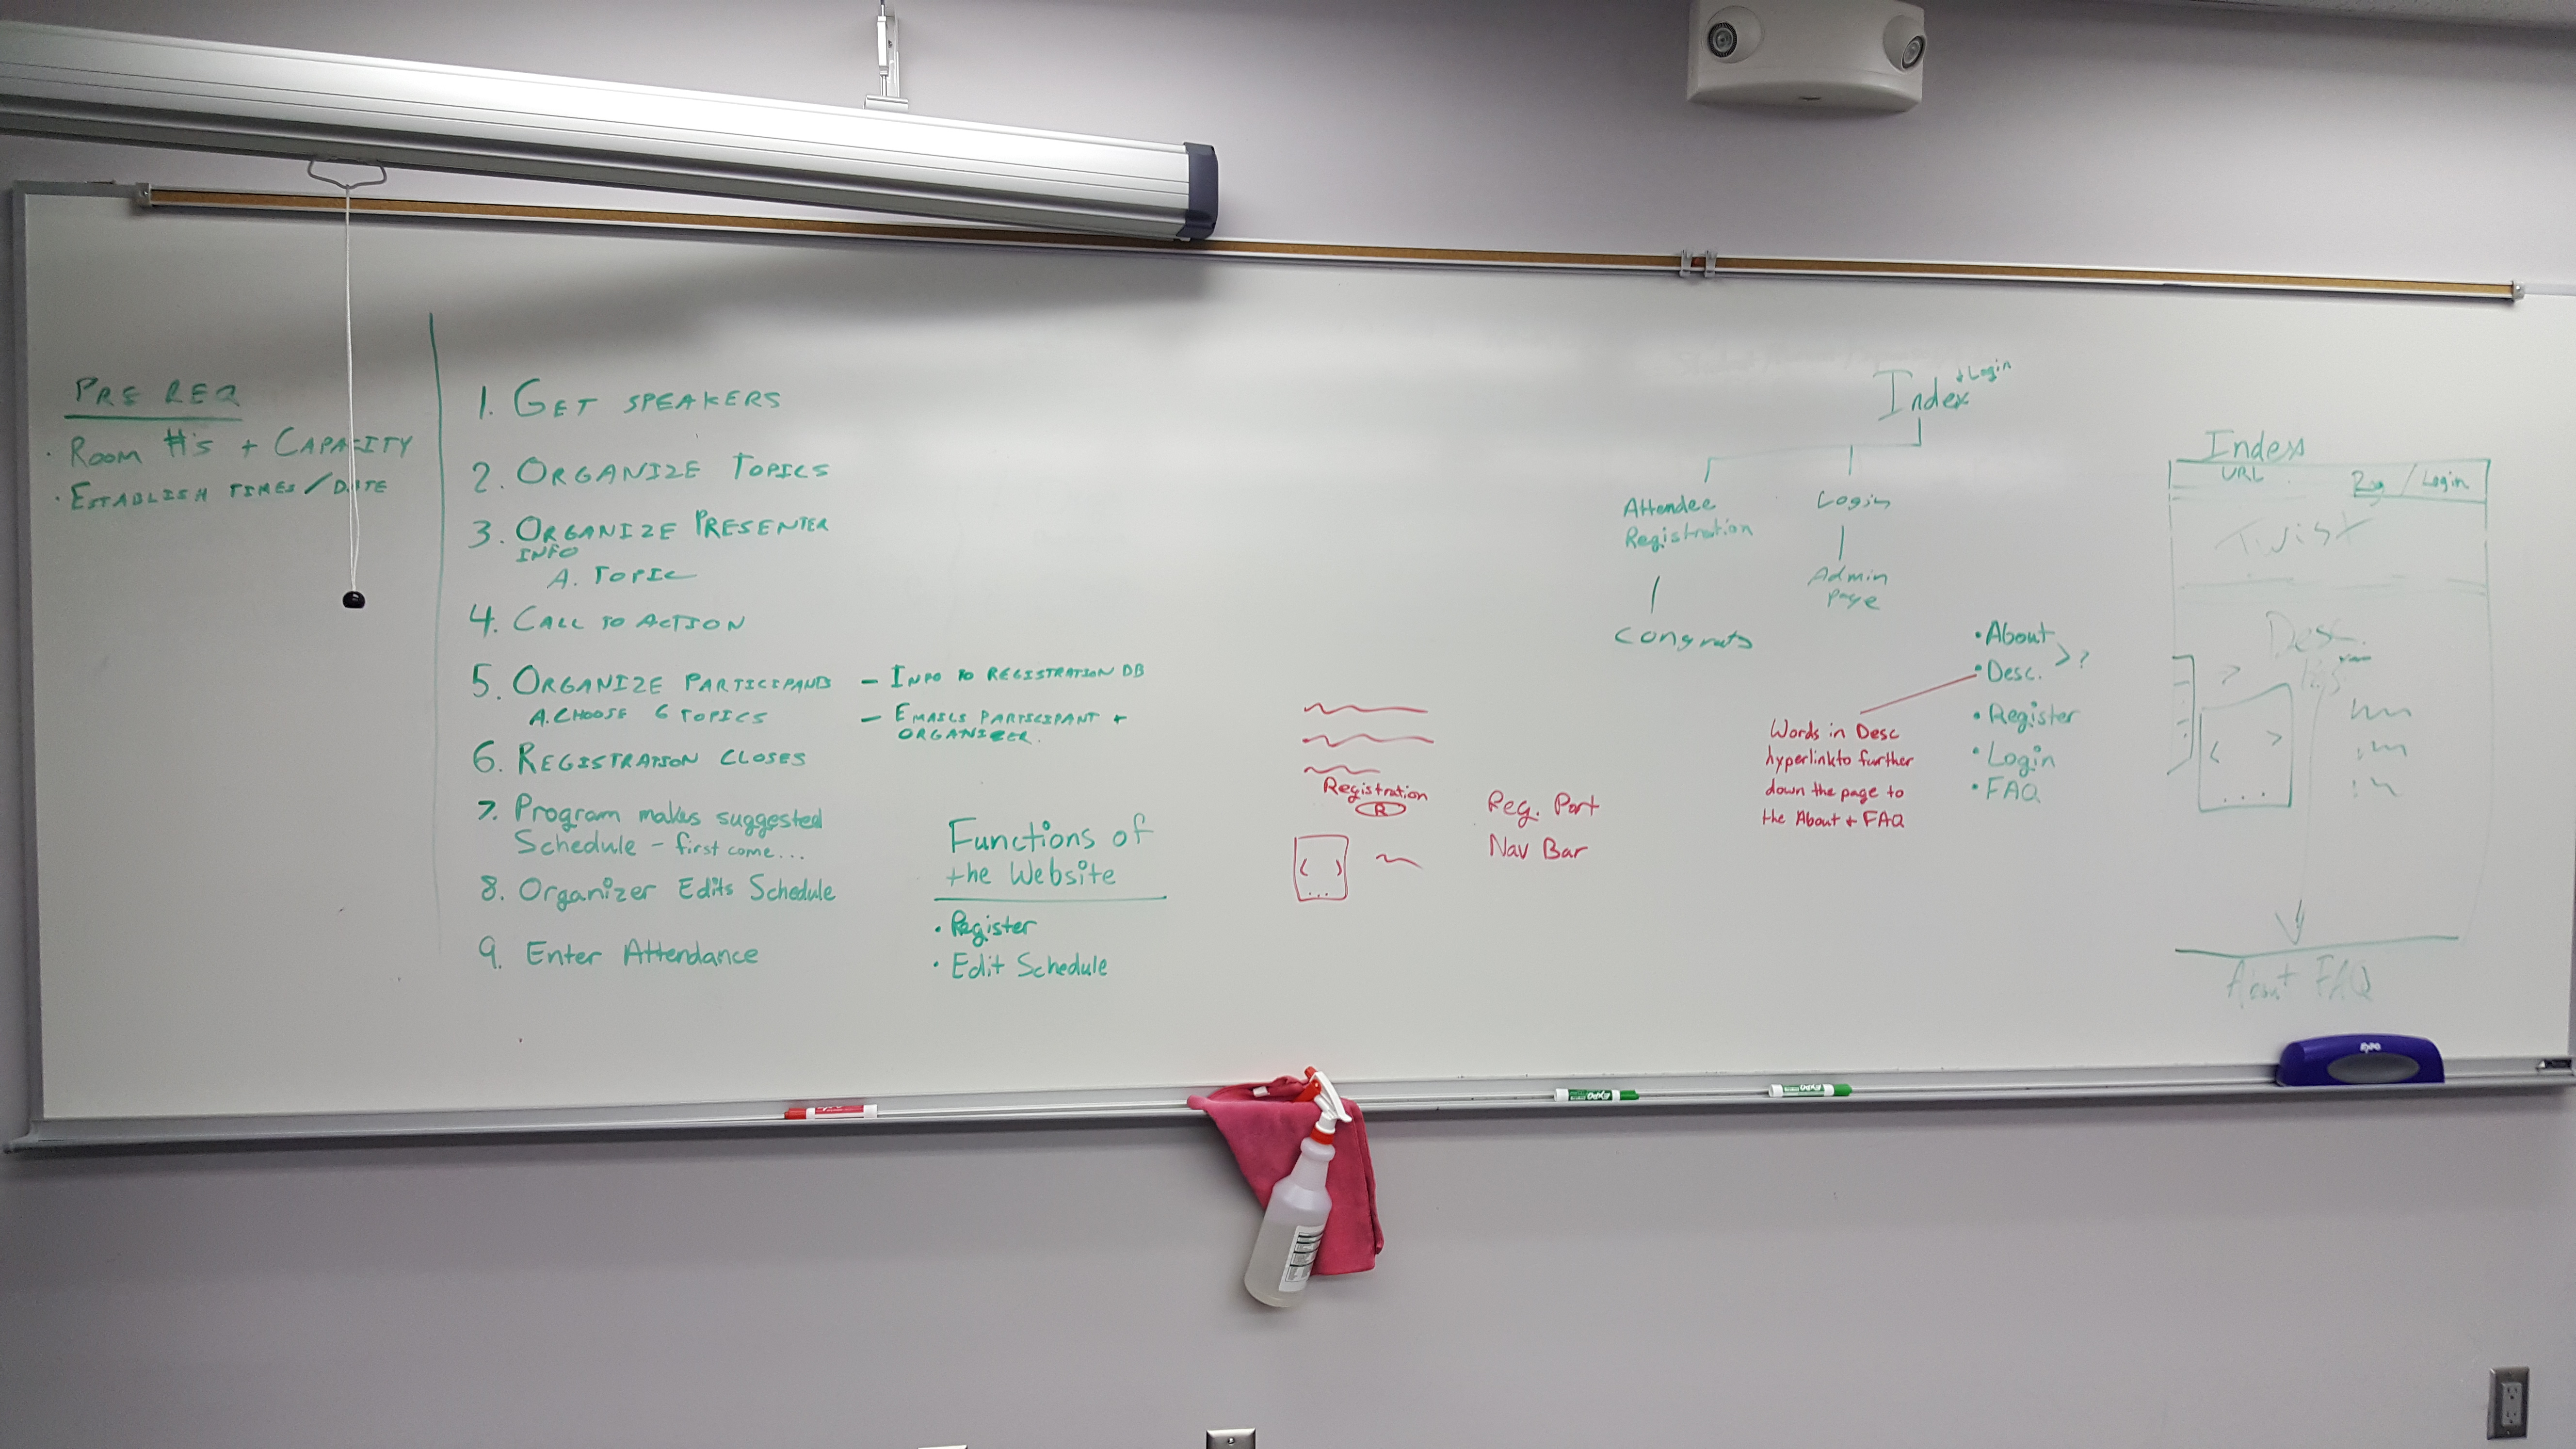 PRE REQ
· ROOM #'s + CAPACITY
· ESTABLISH TIMES / DATE
1. GET SPEAKERS
2. ORGANIZE TOPICS
3. ORGANIZE PRESENTER
INFO
A. TOPIC
4. CALL TO ACTION
5. ORGANIZE PARTICIPANTS
A. CHOOSE 6 TOPICS
- INFO TO REGISTRATION DB
- EMAILS PARTICIPANT +
ORGANIZER.
6. REGISTRATION CLOSES
7. Program makes suggested
Schedule - first come...
8. Organizer Edits Schedule
9. Enter Attendance
Functions of
the Website
· Register
· Edit Schedule
Registration
R
Reg. Port
Nav Bar
Index + Login
Attendee
Registration
Congrats
Login
Admin
page
· About
· Desc. > ?
· Register
· Login
· FAQ
Words in Desc
hyperlink to further
down the page to
the About + FAQ
Index
URL
Reg / Login
Twist
Desc.
About FAQ
EXPO
EXPO
EXPO